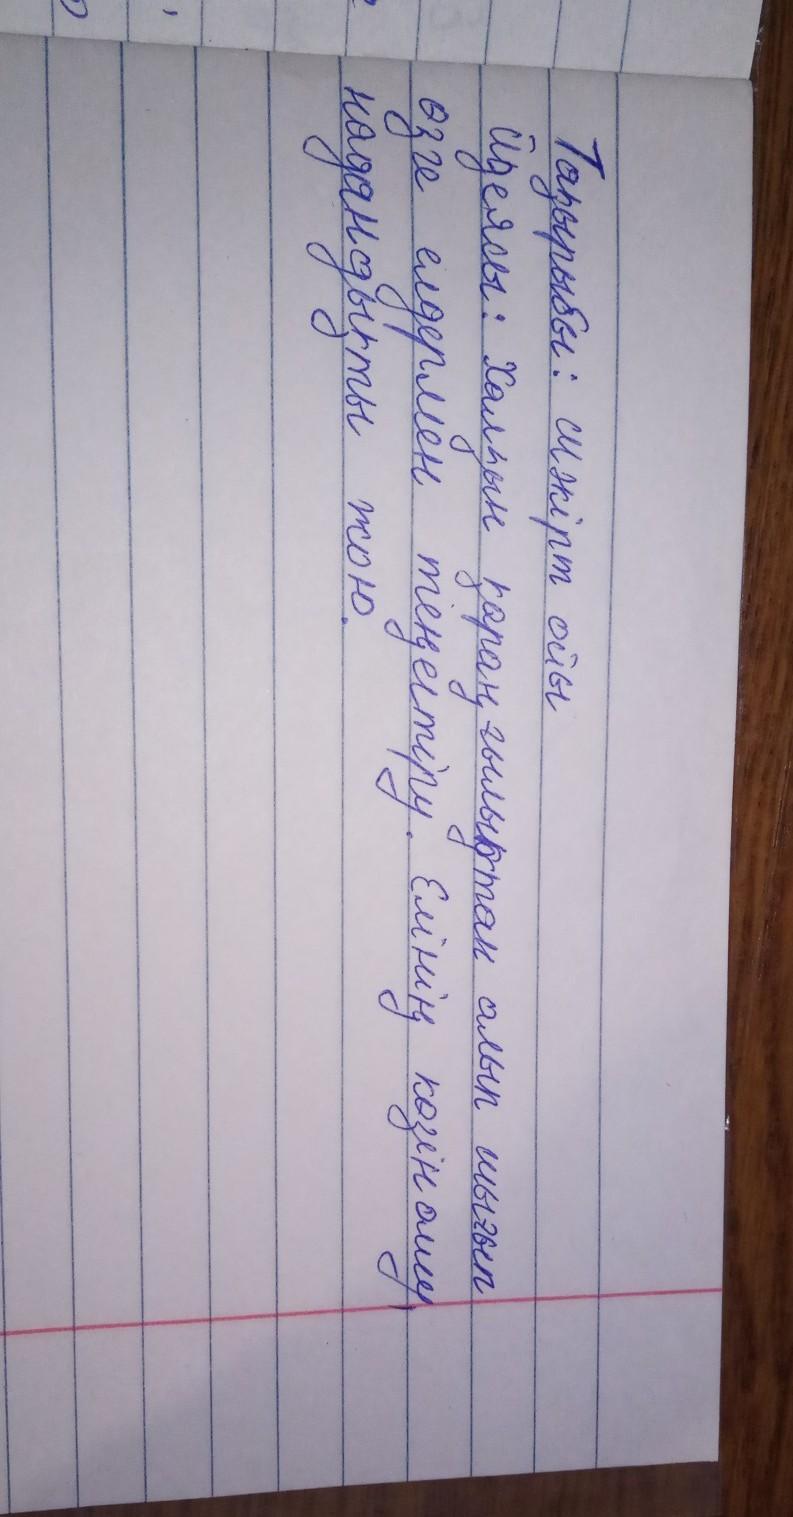 Тақырыбы: шәкірт ойы
Идеясы: Халқын қараңғылықтан алып шығып
өзге елдермен теңестіру. Елінің көзін ашу,
надандықты жою.